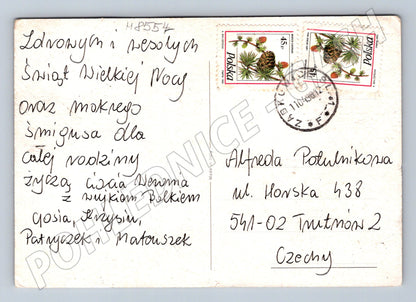 H8554
Zdrowych i wesołych
Świąt Wielkiej Nocy
oraz mokrego
śmigusa dla
całej rodziny
życzą ciocia
z wujkiem
Gosia, Krzysiu,
Patryczek i Matouszek
45 gr
Polska
Polska
Alfreda Połulnikowa
ul. Horska 438
541-02 Trutnov 2
Czechy
POHLEDNICE